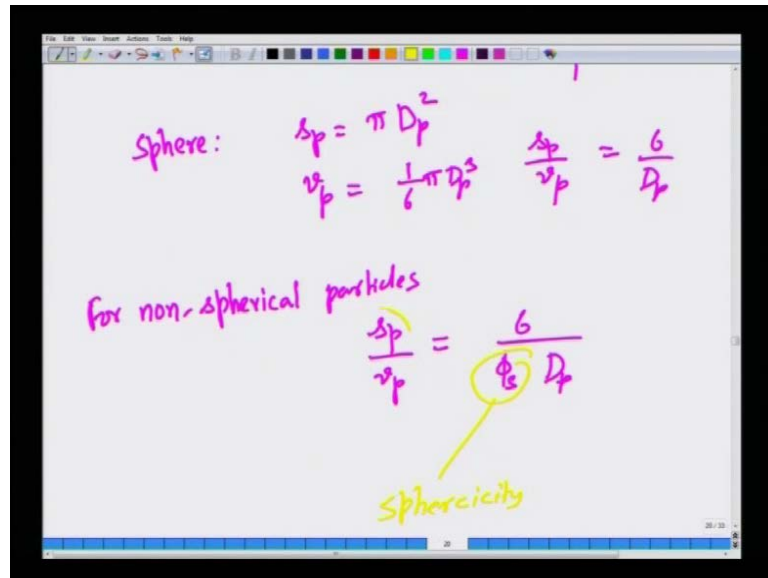 File Edit View Insert Actions Tools Help
Sphere: sp = π Dp²
vp = 1/6 π Dp³ sp/vp = 6/Dp
For non-spherical particles
sp/vp = 6/ϕs Dp
sphercicity
20